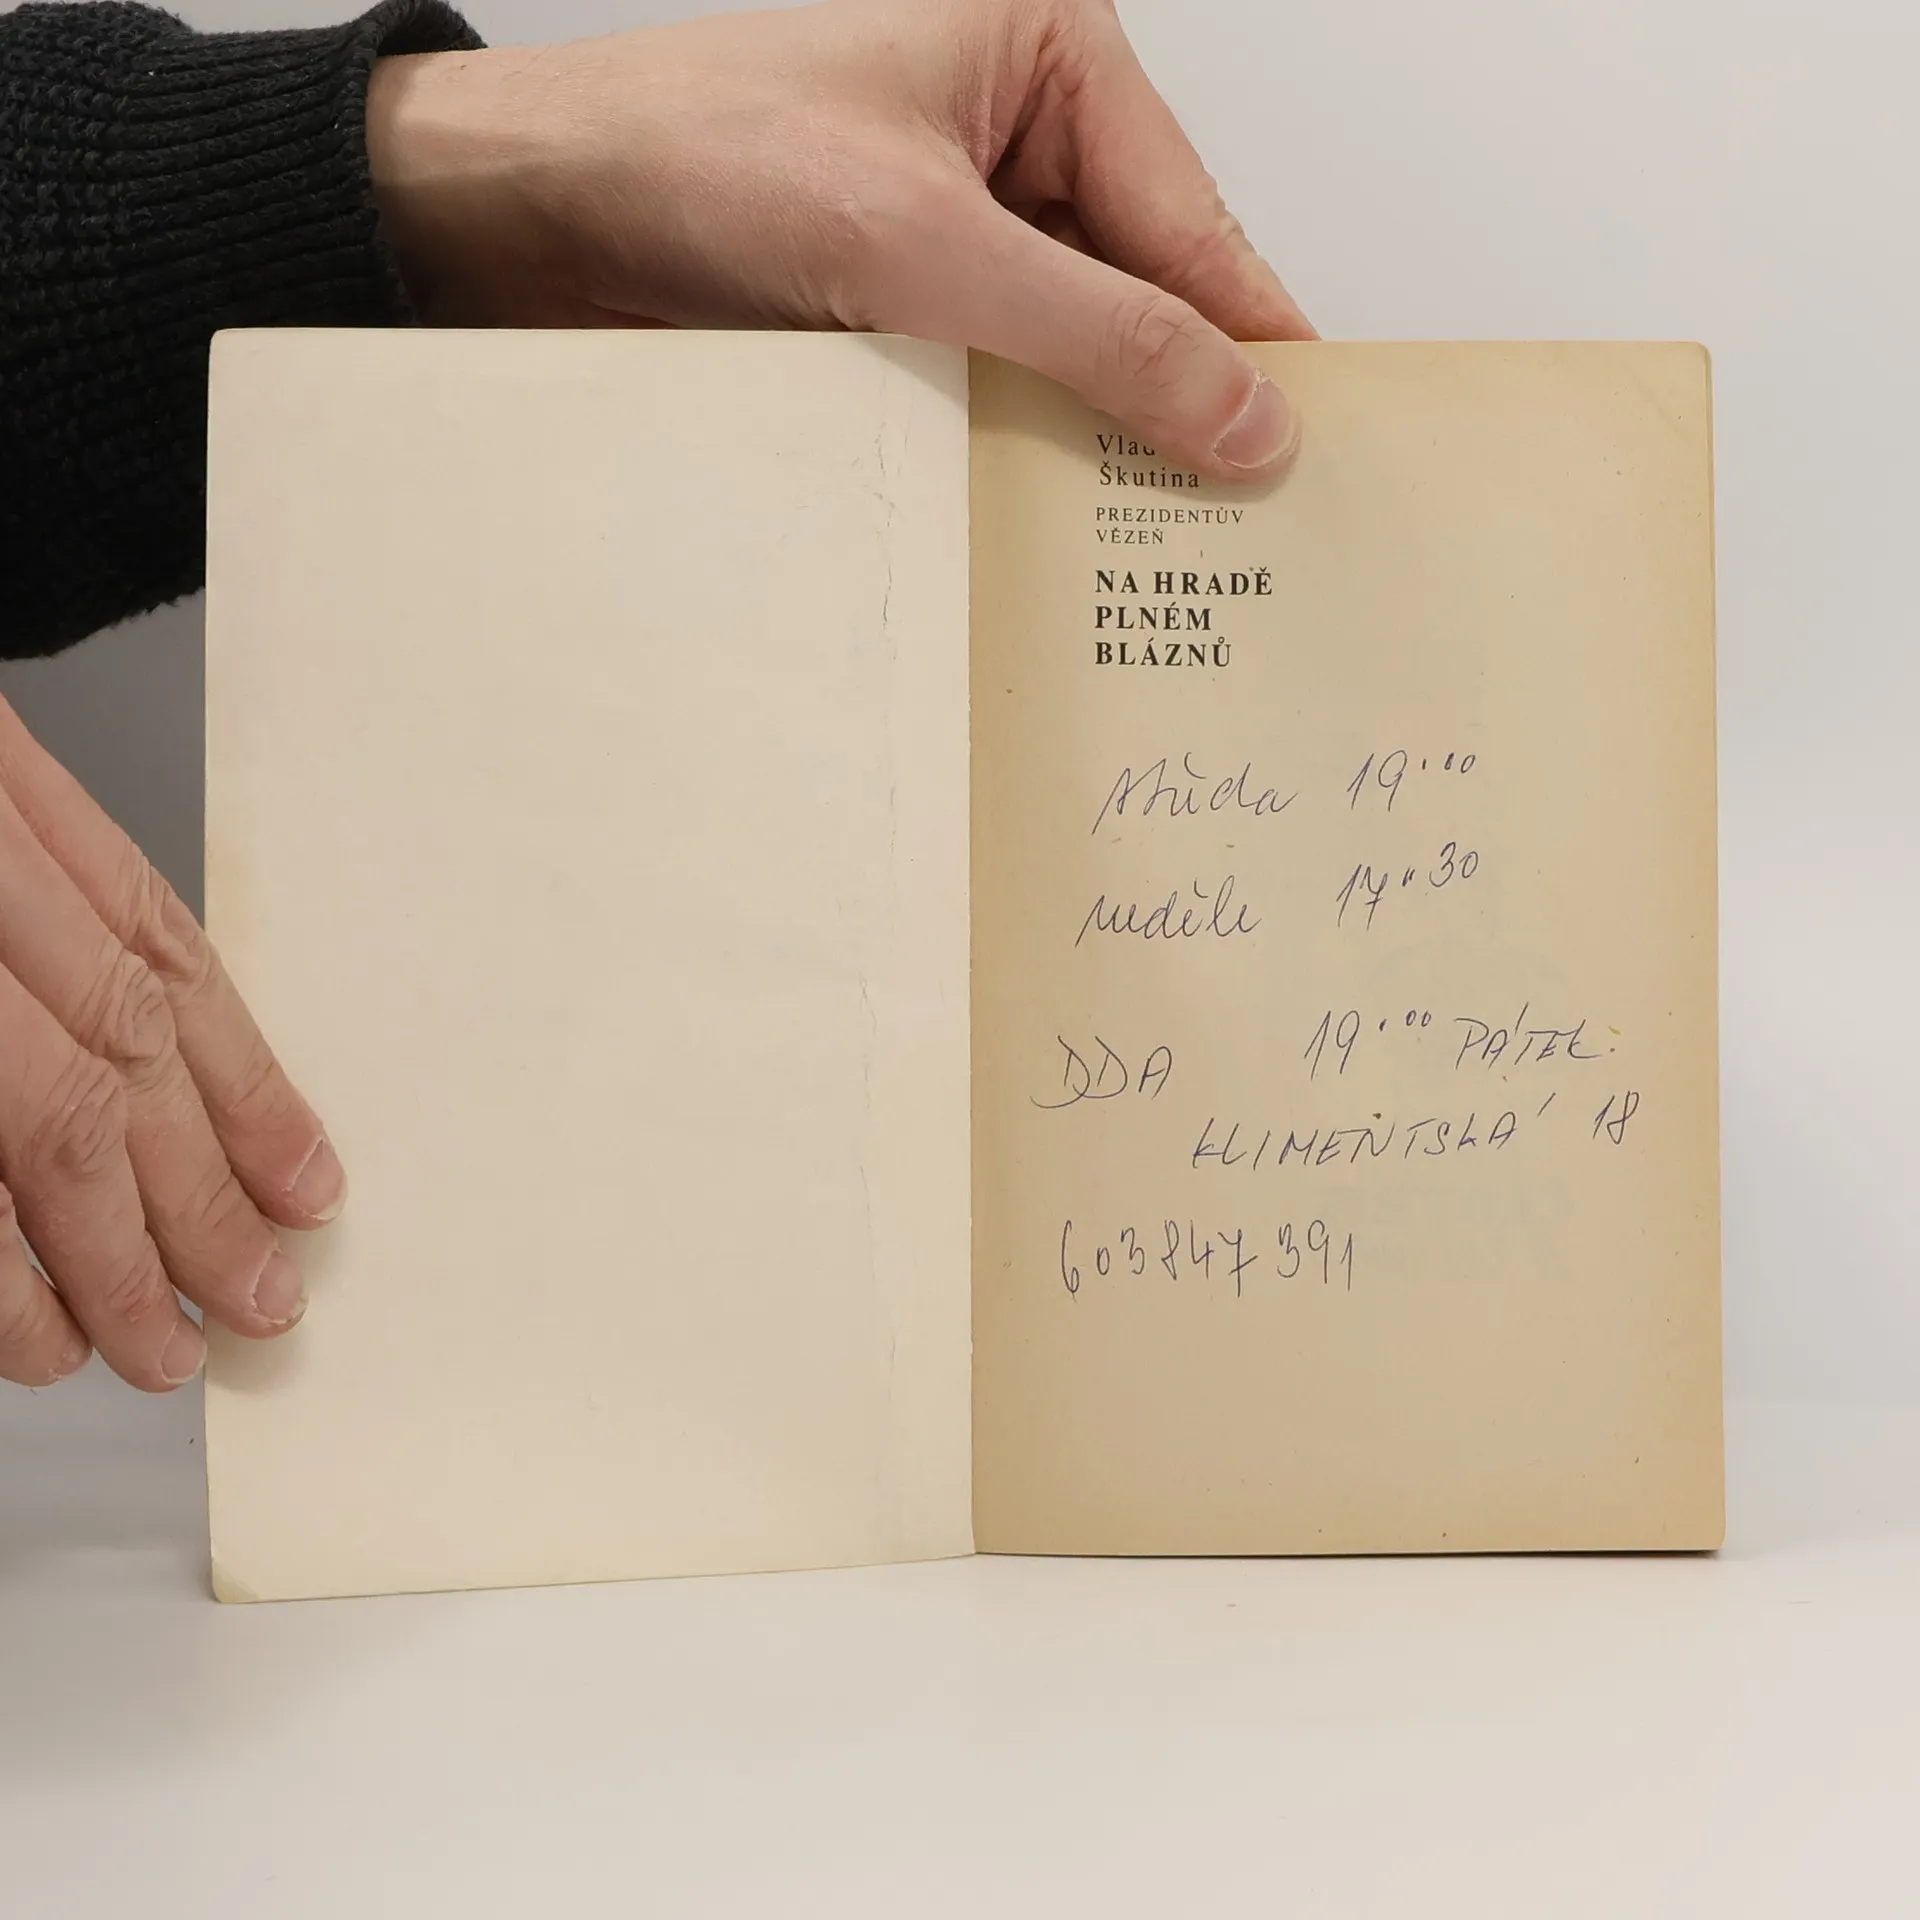 Vlad
Škutina
PREZIDENTŮV
VĚZEŇ
NA HRADĚ
PLNÉM
BLÁZNŮ
středa 19.00
neděle 17.30
DDA 19.00 PÁTEK.
KLIMENTSKÁ 18
603847391